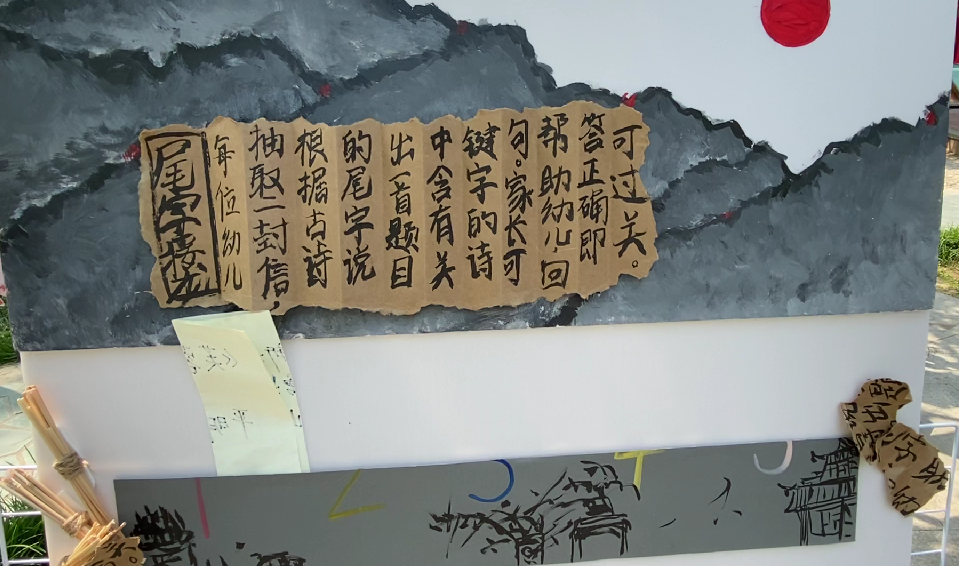 尾字接龙
每位幼儿
抽取一封信，
根据古诗
的尾字说
出一首题目
中含有关
键字的诗
句。家长可
帮助幼儿回
答正确即
可过关。
1 2 3 4 5